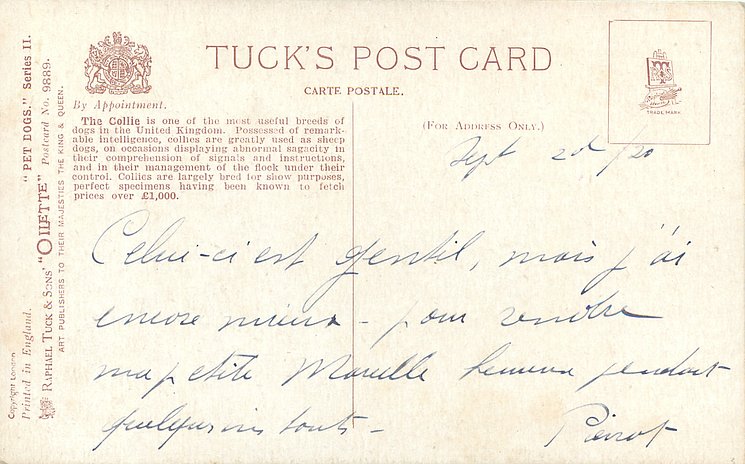 TUCK'S POST CARD
CARTE POSTALE.
By Appointment.
The Collie is one of the most useful breeds of
dogs in the United Kingdom. Possessed of remark-
able intelligence, collies are greatly used as sheep
dogs, on occasions displaying abnormal sagacity in
their comprehension of signals and instructions,
and in their management of the flock under their
control. Collies are largely bred for show purposes,
perfect specimens having been known to fetch
prices over £1,000.
(FOR ADDRESS ONLY.)
TRADE MARK
Sept 2d /20
Celui-ci est gentil, mais j'ai
encore mieux - pour rendre
ma petite heureuse pendant
Pierrot
"PET DOGS." Series II.
RAPHAEL TUCK & SONS' "OILETTE" Postcard No. 9889.
ART PUBLISHERS TO THEIR MAJESTIES THE KING & QUEEN.
Copyright London
Printed in England.